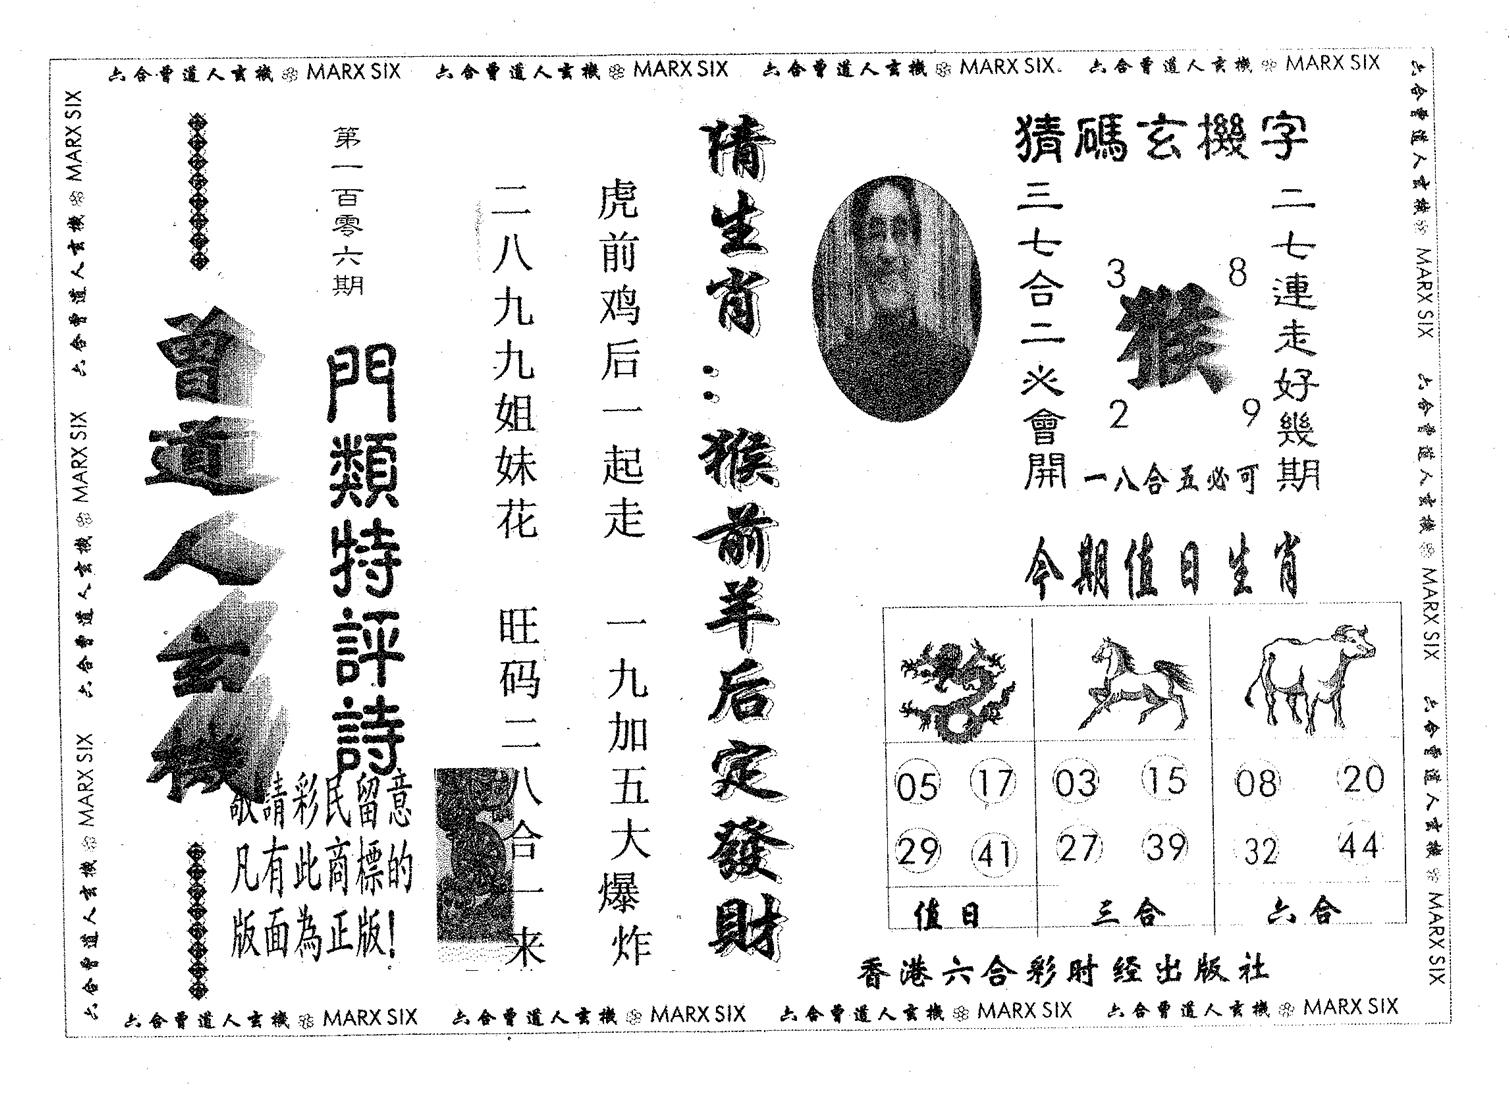 六合曾道人玄機 MARX SIX 六合曾道人玄機 MARX SIX 六合曾道人玄機 MARX SIX 六合曾道人玄機 MARX SIX
六合曾道人玄機 MARX SIX 六合曾道人玄機 MARX SIX 六合曾道人玄機 MARX SIX
六合曾道人玄機 MARX SIX 六合曾道人玄機 MARX SIX 六合曾道人玄機 MARX SIX
猜碼玄機字
二七連走好幾期
3 8
猴
2 9
三七合二必會開
一八合五必可
今期值日生肖
05 17 03 15 08 20
29 41 27 39 32 44
值日 三合 六合
香港六合彩时经出版社
猜生肖:猴前羊后定發財
虎前鸡后一起走 一九加五大爆炸
二八九九姐妹花 旺码二八合一来
第一百零六期
門類特評詩
曾道人玄機
敬請彩民留意
凡有此商標的
版面為正版!
六合曾道人玄機 MARX SIX 六合曾道人玄機 MARX SIX 六合曾道人玄機 MARX SIX 六合曾道人玄機 MARX SIX